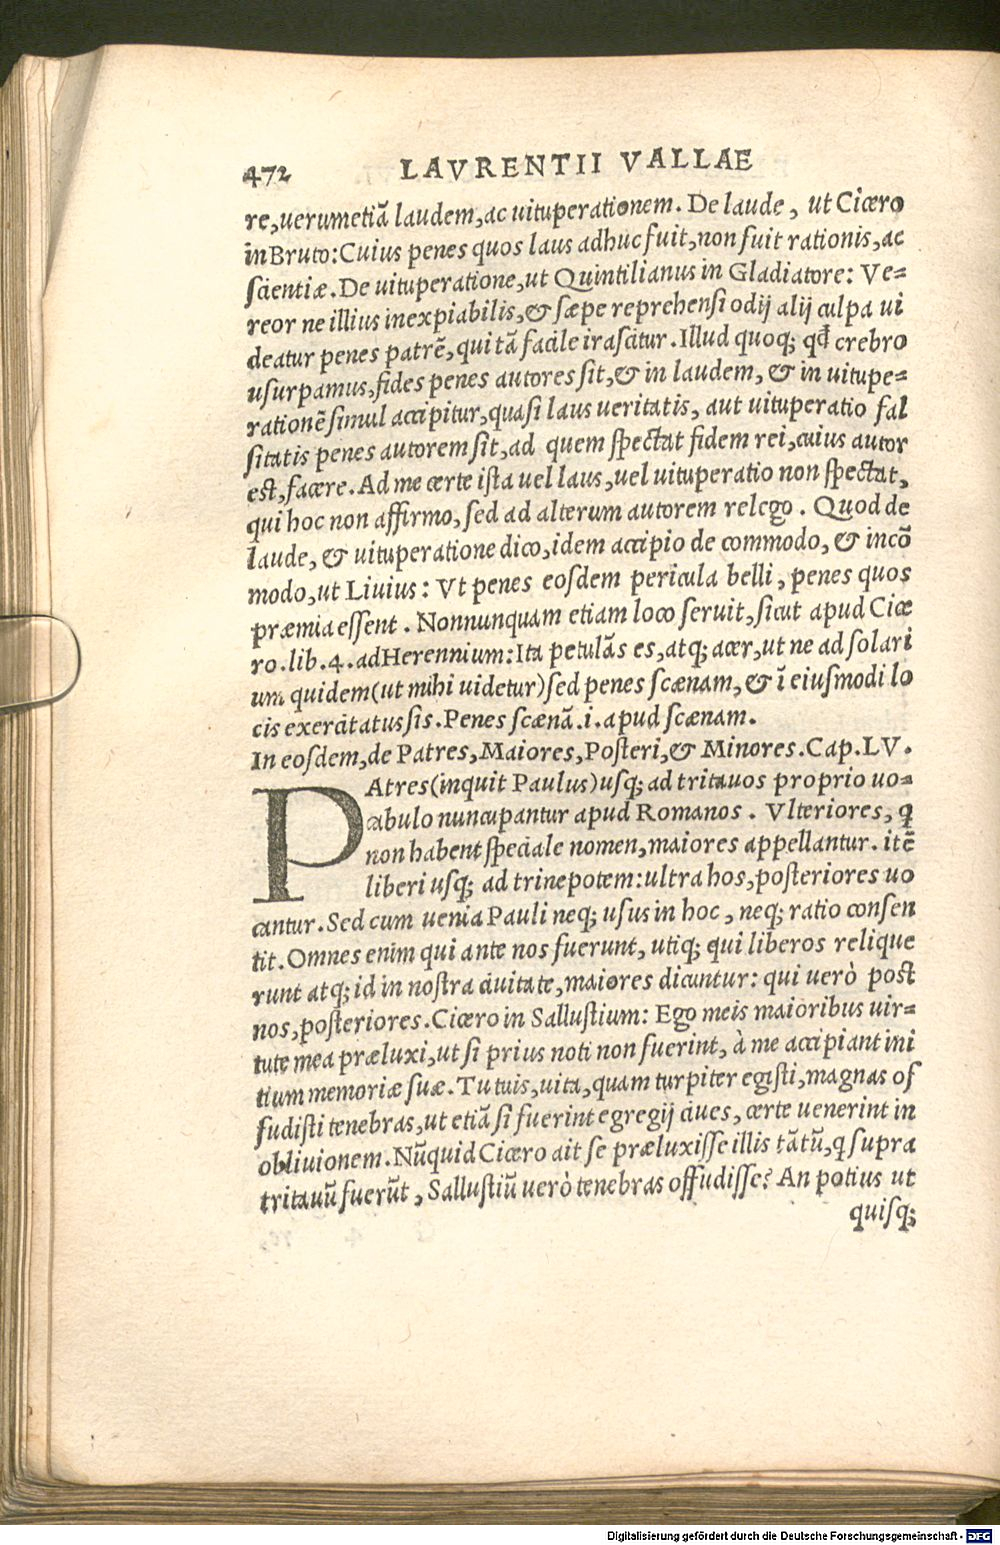 472 LAVRENTII VALLAE
re,uerumetiã laudem,ac uituperationem. De laude, ut Cicero
in Bruto:Cuius penes quos laus adhuc fuit,non fuit rationis,ac
ſcientiæ. De uituperatione,ut Quintilianus in Gladiatore: Ve=
reor ne illius inexpiabilis,& ſæpe reprehenſi odij alij culpa ui
deatur penes patrẽ,qui tã facile iraſcitur. Illud quoq; qđ crebro
uſurpamus,fides penes autores ſit,& in laudem, & in uitupe=
rationẽ ſimul accipitur,quaſi laus ueritatis, aut uituperatio fal
ſitatis penes autorem ſit,ad quem ſpectat fidem rei,cuius autor
eſt,facere. Ad me certe iſta uel laus,uel uituperatio non ſpectat,
qui hoc non affirmo,ſed ad alterum autorem relego. Quod de
laude, & uituperatione dico,idem accipio de commodo, & incõ
modo,ut Liuius: Vt penes eoſdem pericula belli, penes quos
præmia eſſent. Nonnunquam etiam loco ſeruit,ſicut apud Cice
ro.lib.4.adHerennium:Ita petulãs es,atq; acer,ut ne ad ſolari
um quidem(ut mihi uidetur)ſed penes ſcænam,& ĩ eiuſmodi lo
cis exercitatus ſis. Penes ſcænã.i.apud ſcænam.
In eoſdem,de Patres,Maiores,Poſteri,& Minores.Cap.LV.
PAtres(inquit Paulus)uſq; ad tritauos proprio uo=
cabulo nuncupantur apud Romanos. Vlteriores, q
non habent ſpeciale nomen,maiores appellantur. itẽ
liberi uſq; ad trinepotem:ultra hos,poſteriores uo
cantur. Sed cum uenia Pauli neq; uſus in hoc, neq; ratio conſen
tit. Omnes enim qui ante nos fuerunt, utiq; qui liberos relique
runt atq; id in noſtra ciuitate,maiores dicuntur: qui uerò poſt
nos,poſteriores.Cicero in Salluſtium: Ego meis maioribus uir=
tute mea præluxi,ut ſi prius noti non fuerint, à me accipiant ini
tium memoriæ ſuæ. Tu tuis,uita,quam turpiter egiſti,magnas of
fudiſti tenebras,ut etiã ſi fuerint egregij ciues, certe uenerint in
obliuionem. Nũquid Cicero ait ſe præluxiſſe illis tãtũ,q ſupra
tritauũ fuerũt, Salluſtiũ uerò tenebras offudiſſe? An potius ut
quiſq;
Digitalisierung gefördert durch die Deutsche Forschungsgemeinschaft - DFG